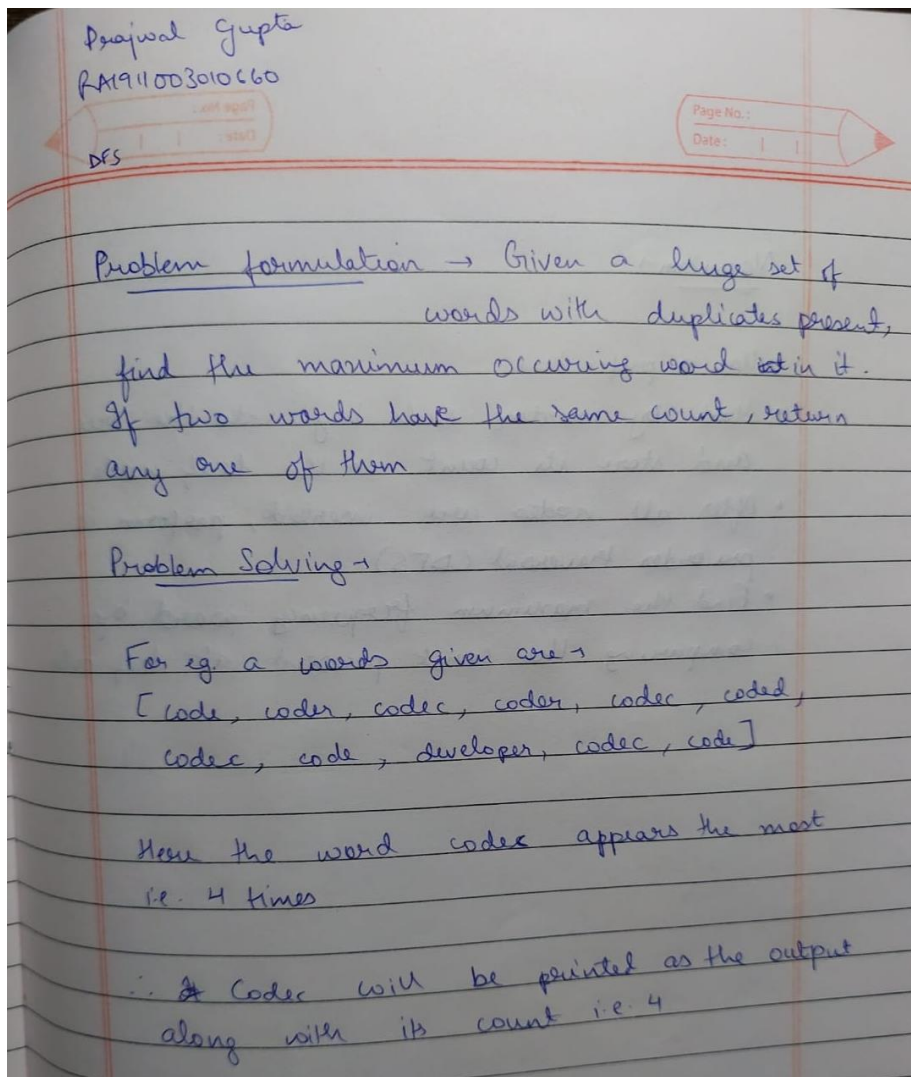 Prajwal Gupta
RA1911003010660
Page No.:
Date:
DFS
Problem formulation → Given a huge set of
words with duplicates present,
find the maximum occuring word in it.
If two words have the same count, return
any one of them
Problem Solving →
For eg. a words given are →
[code, coder, codec, coder, codec, coded,
codec, code, developer, codec, code]
Here the word codec appears the most
i.e. 4 times
∴ Codec will be printed as the output
along with its count i.e. 4